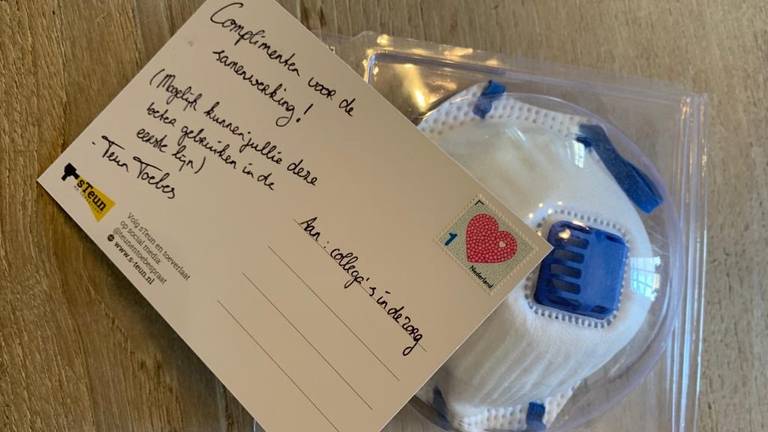 Complimenten voor de
samenwerking!
(Mogelijk kunnen jullie deze
beter gebruiken in de
eerste lijn)
- Teun Toebes
sTeun
Volg sTeun en toeverlaat
op social media:
@teunentoebespraat
www.s-teun.nl
1
Nederland
Aan: collega's in de zorg